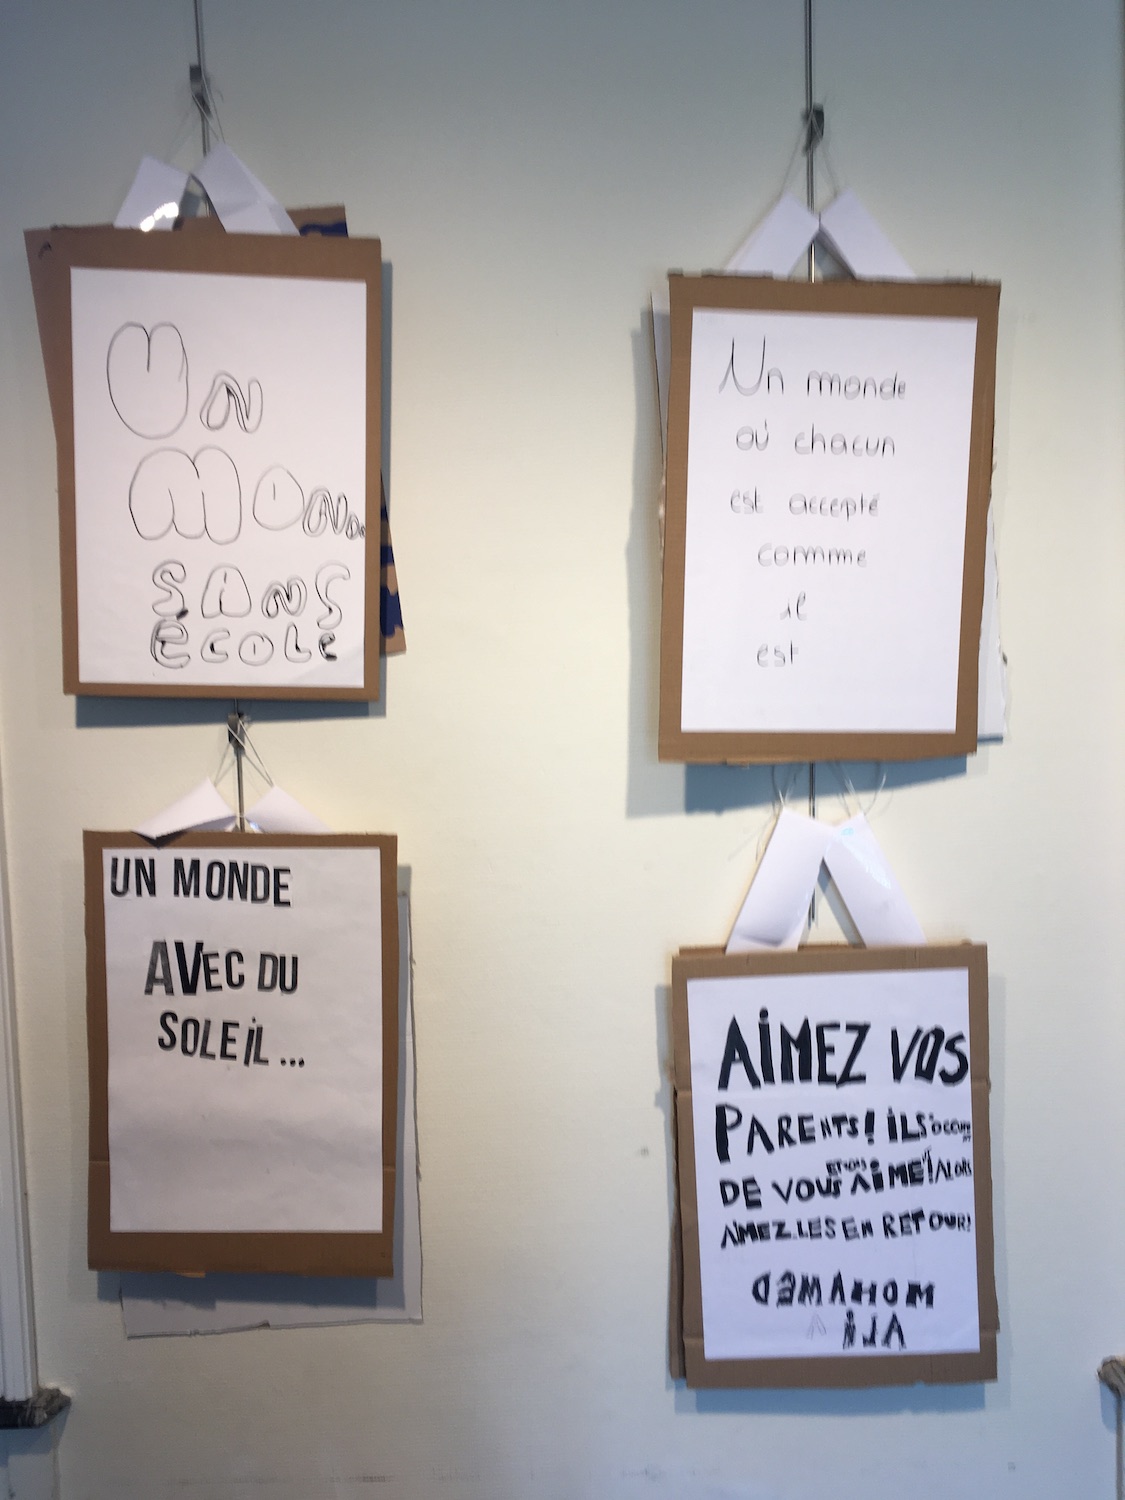 Un
Mon
SANS
ECOLE
Un monde
où chacun
est accepté
comme
il
est
UN MONDE
AVEC DU
SOLEIL...
AIMEZ VOS
PARENTS! ILS S'OCCUPENT
DE VOUS ET VOUS AIME! ALORS
AIMEZ.LES EN RETOUR!
MOHAMED
ALI